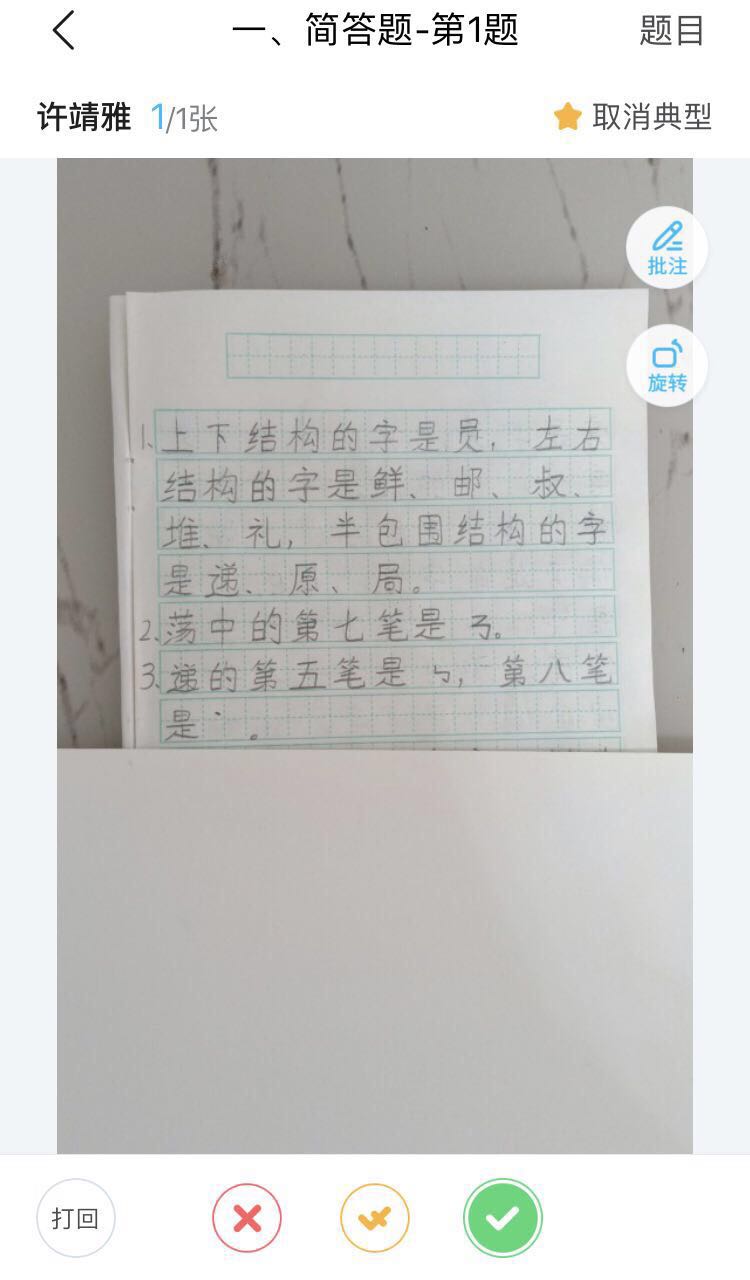 一、简答题-第1题
题目
许靖雅 1/1张
取消典型
批注
旋转
1、上下结构的字是员，左右
结构的字是鲜、邮、叔、
堆、礼，半包围结构的字
是递、原、局。
2、荡中的第七笔是𠃎。
3、递的第五笔是㇉，第八笔
是丶。
打回